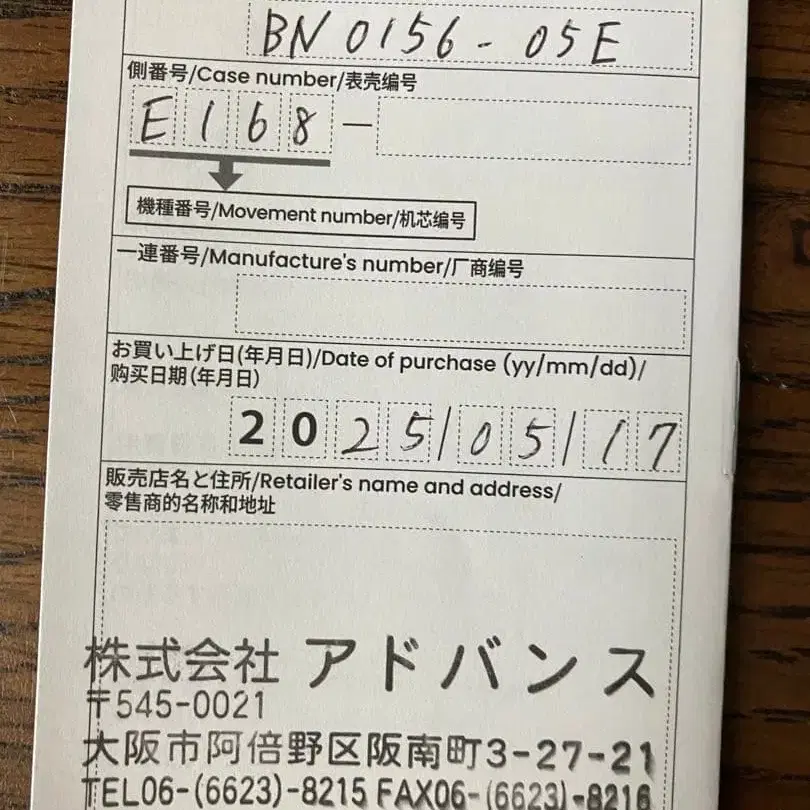 BN0156-05E
側番号/Case number/表壳编号
E168-
機種番号/Movement number/机芯编号
一連番号/Manufacture's number/厂商编号
お買い上げ日(年月日)/Date of purchase (yy/mm/dd)/
购买日期(年月日)
2025/05/17
販売店名と住所/Retailer's name and address/
零售商的名称和地址
株式会社 アドバンス
〒545-0021
大阪市阿倍野区阪南町3-27-21
TEL06-(6623)-8215 FAX06-(6623)-8216